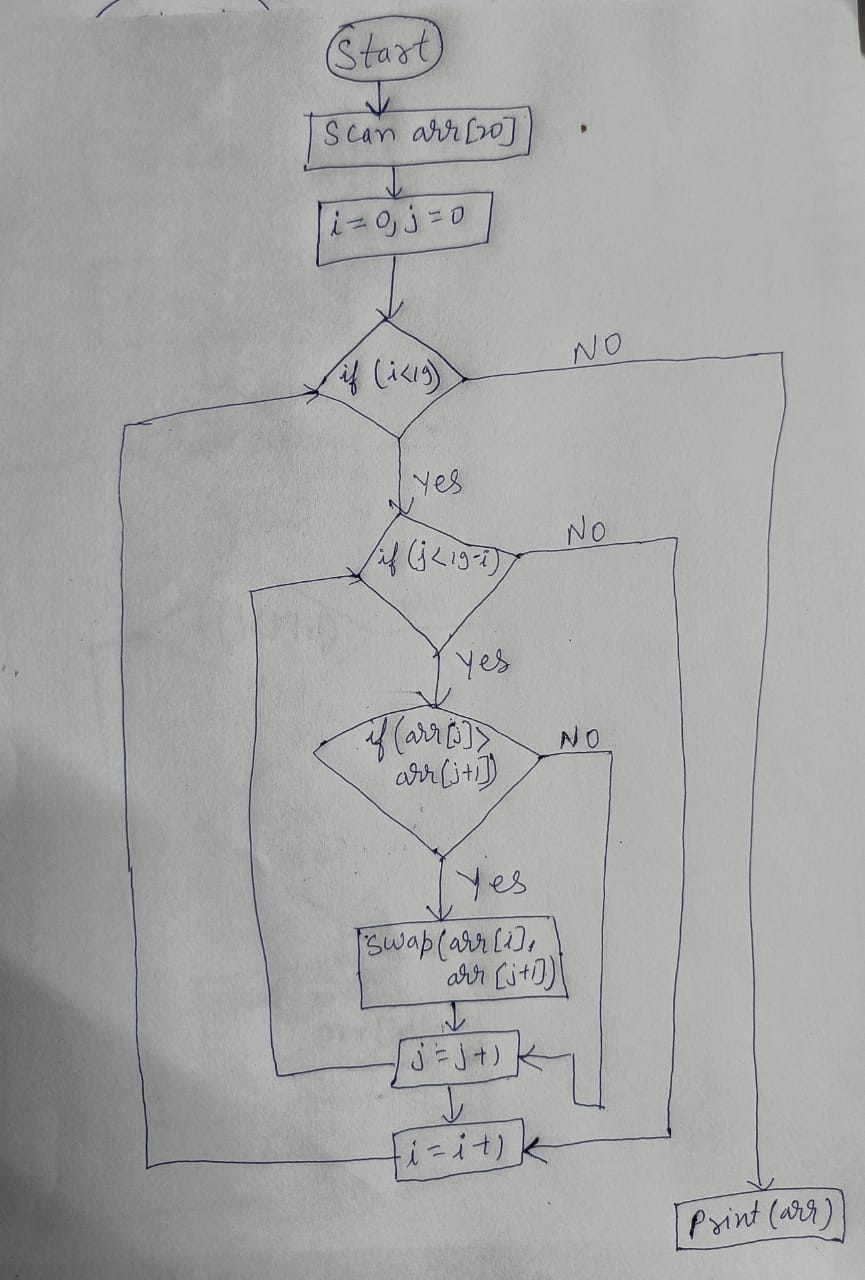 Start
Scan arr[20]
i=0, j=0
if (i<19)
NO
Yes
if (j<19-i)
NO
Yes
if (arr[j]>
arr[j+1])
NO
Yes
Swap(arr[i],
arr[j+1])
j=j+1
i=i+1
Print(arr)